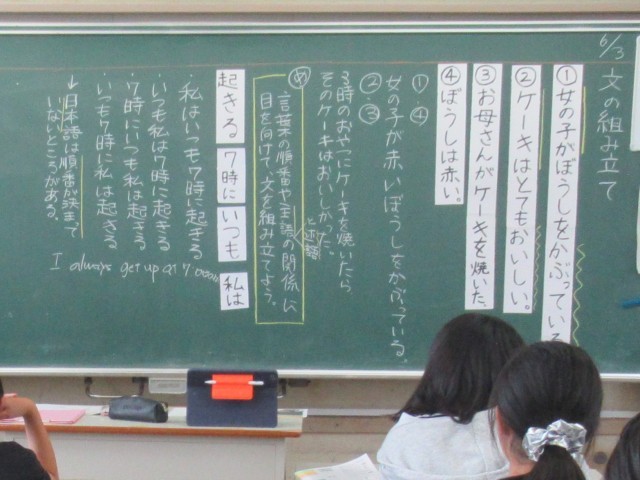 6/3
文の組み立て
①女の子がぼうしをかぶっている
②ケーキはとてもおいしい。
③お母さんがケーキを焼いた。
④ぼうしは赤い。
①・④
女の子が赤いぼうしをかぶっている。
②・③
3時のおやつにケーキを焼いたら
そのケーキはおいしかった。
め
言葉の順番や主語と述語の関係に
目を向けて、文を組み立てよう。
起きる 7時に いつも 私は
・私はいつも7時に起きる
・いつも私は7時に起きる
・7時にいつも私は起きる
・いつも7時に私は起きる
↓日本語は順番が決まって
いないところがある。
I always get up at 7